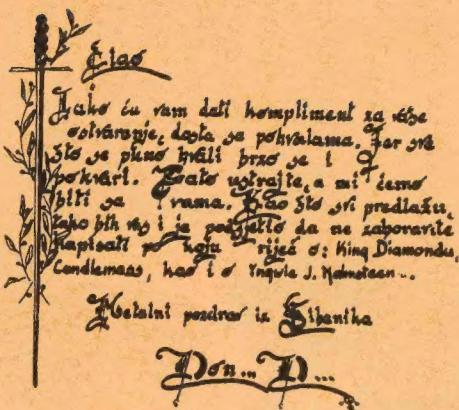 Ciao
Iako ću vam dati kompliment za vaše
ostvaranje, dosta sa pohvalama. Jer sve
što se puno hvali brzo se i
pokvari. Zato ustrajte, a mi ćemo
biti sa vama. Kao što svi predlažu,
tako bih vas i ja podsjetio da ne zaboravite
napisati po koju riječ o: King Diamondu,
Candlemass, kao i o Yngwie J. Malmsteen...
Metalni pozdrav iz Šibenika
Don... D...